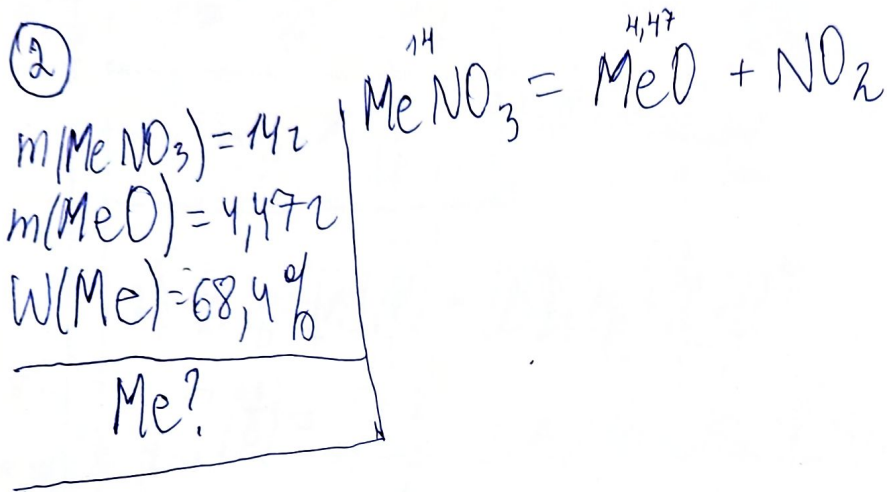 2
m(MeNO₃)=14г
m(MeO)=4,47г
W(Me)=68,4%
Me?
14 4,47
MeNO₃ = MeO + NO₂